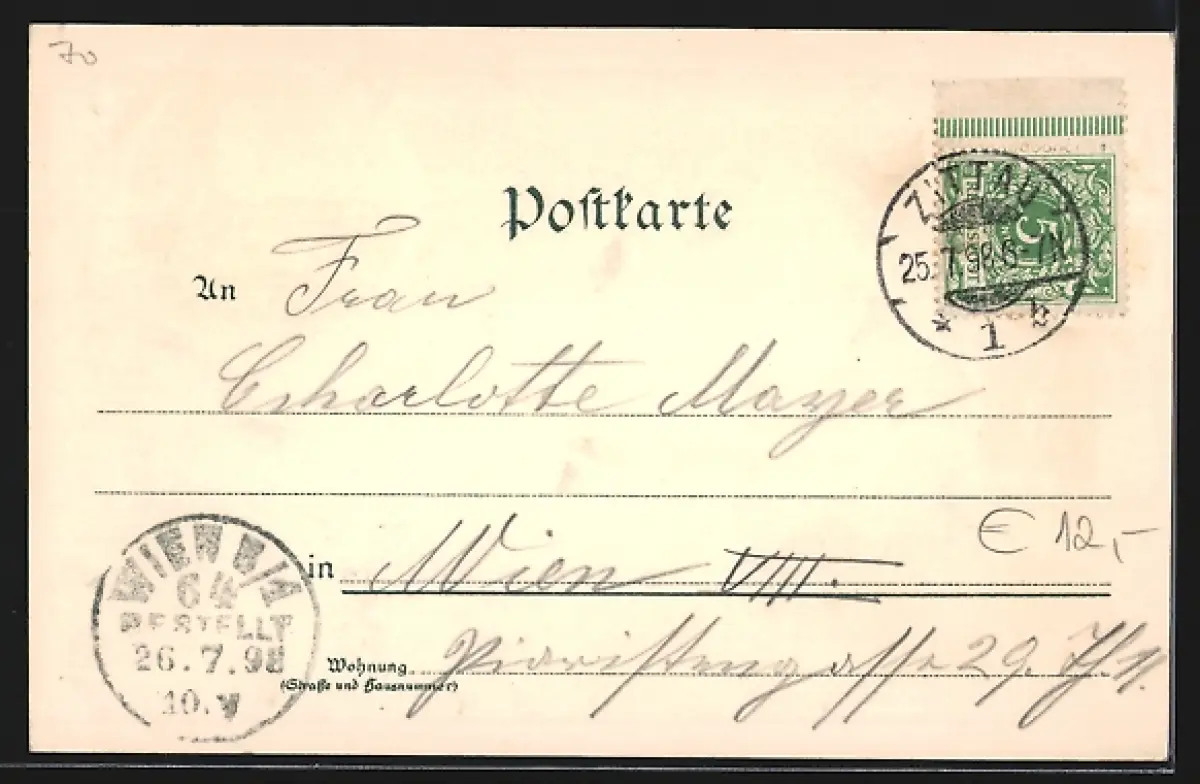 70
Postkarte
An Frau
Charlotte Mayer
in Wien VIII.
Wohnung Piaristengasse 29.
(Straße und Hausnummer)
ZITTAU
25.7.98. 6-7N
* 1
5
WIEN 8/1
64
BESTELLT
26.7.98
10.V
€ 12,-